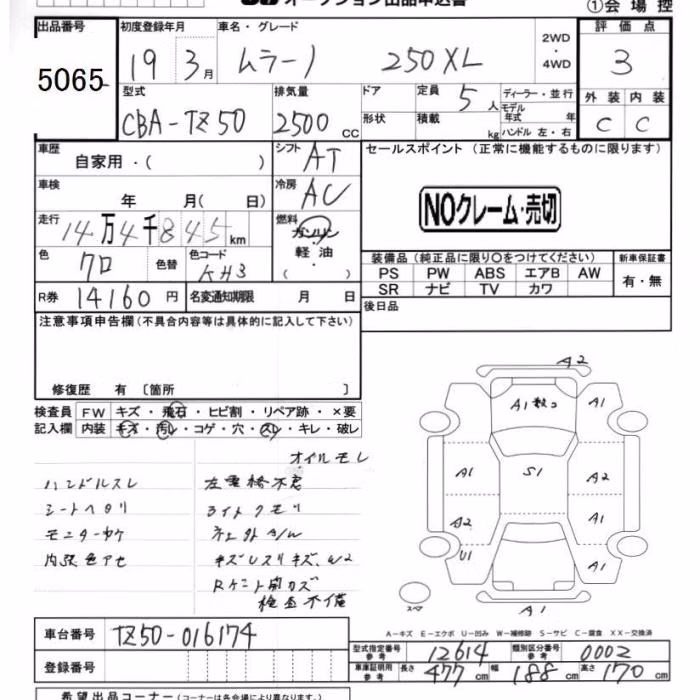 ①会場控
出品番号 初度登録年月 車名・グレード 2WD・4WD 評価点
5065 19 3月 ムラーノ 250XL 3
型式 排気量 ドア 定員 5人 ディーラー・並行 外装 内装
CBA-TZ50 2500cc 形状 積載 kg モデル年式 年式 ハンドル 左・右 C C
車歴 自家用・( ) シフト AT セールスポイント (正常に機能するものに限ります)
車検 年 月( 日) 冷房 AC
NOクレーム・売切
走行 14万4千845km 燃料 ガソリン
軽油
・( )
色 クロ 色替 色コード KH3
装備品(純正品に限り○をつけてください) 新車保証書
PS PW ABS エアB AW 有・無
SR ナビ TV カワ
R券 14160円 名変通知期限 月 日
後日品
注意事項申告欄(不具合内容等は具体的に記入して下さい)
修復歴 有 〔箇所 〕
検査員 FW キズ・飛石・ヒビ割・リペア跡・×要
記入欄 内装 キズ・汚レ・コゲ・穴・スレ・キレ・破レ
オイルモレ
ハンドルスレ
シートヘタリ ライトクモリ
内張色アセ
検査不備
A2
A1 A1
A1 S1 A2
A2 A1
U1 A1
A1
スペア
A-キズ E-エクボ U-凹み W-補修跡 S-サビ C-腐食 XX-交換済
車台番号 TZ50-016174
型式指定番号 参考 12614 類別区分番号 参考 0002
登録番号
車庫証明用 参考 長さ 477cm 幅 188cm 高さ 170cm
希望出品コーナー(コーナーは各会場により異なります。)